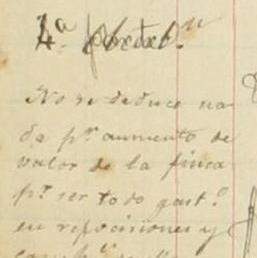 4ª
No se deduce na
da pr. aumento de
valor de la finca
pr. ser todo gast.º
en reposiciones y